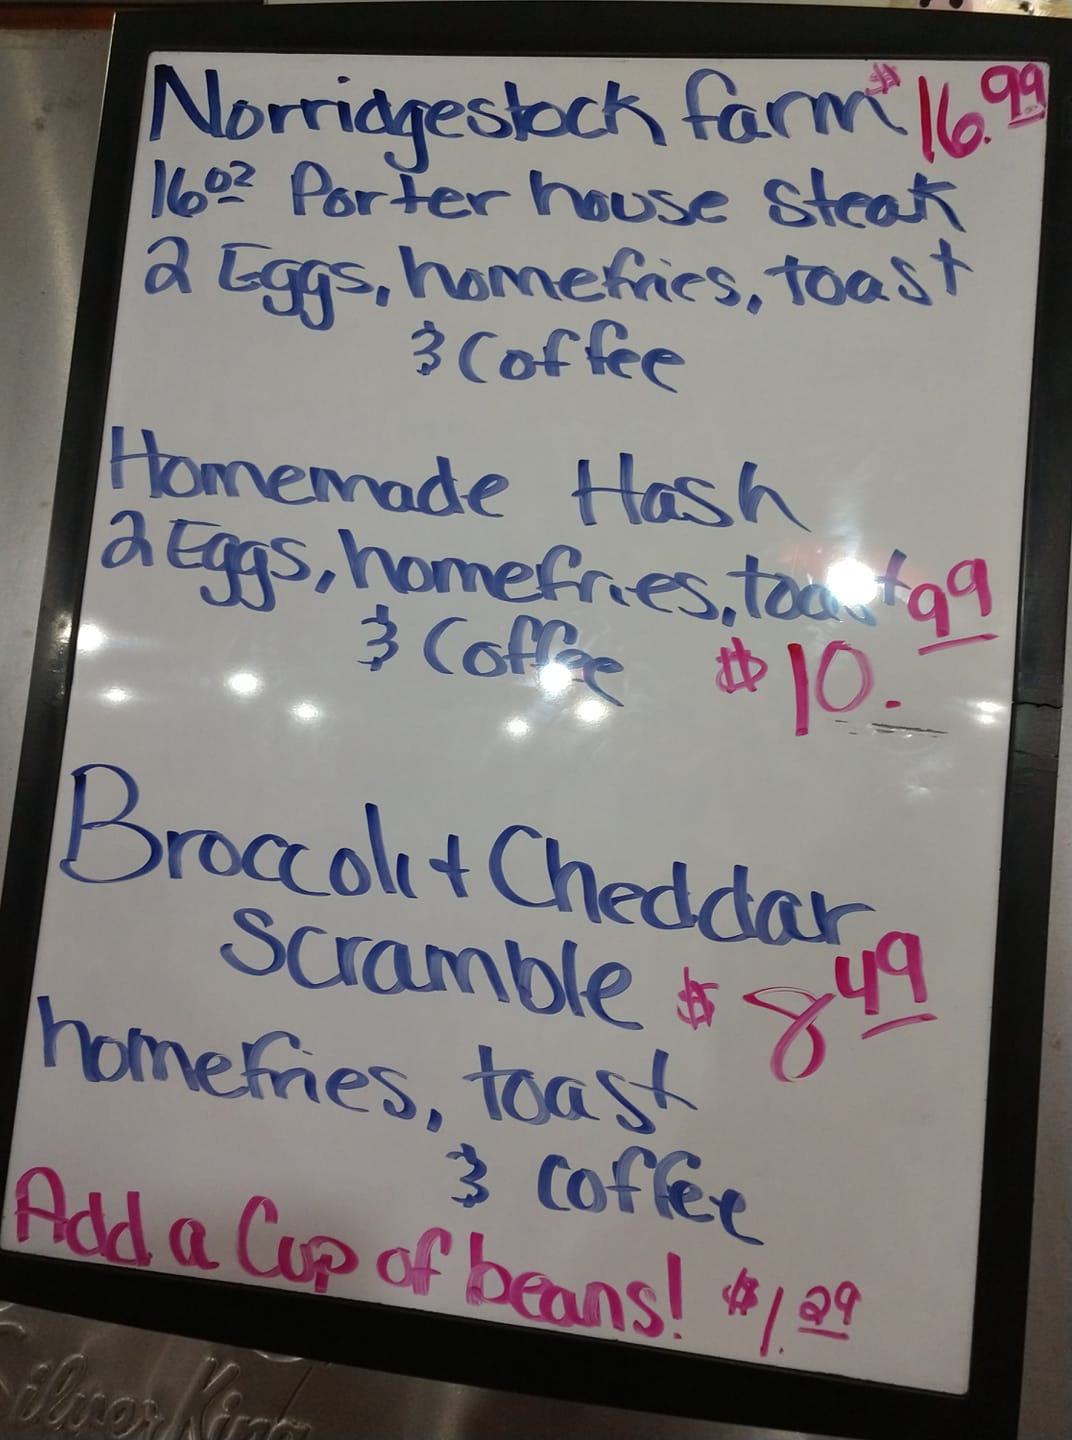 Norridgestock farm $16.99
16oz Porter house Steak
2 Eggs, homefries, toast
& Coffee
Homemade Hash
2 Eggs, homefries, toast
& Coffee $10.99
Broccoli + Cheddar
Scramble $8.49
homefries, toast
& coffee
Add a Cup of beans! $1.29
Silver King